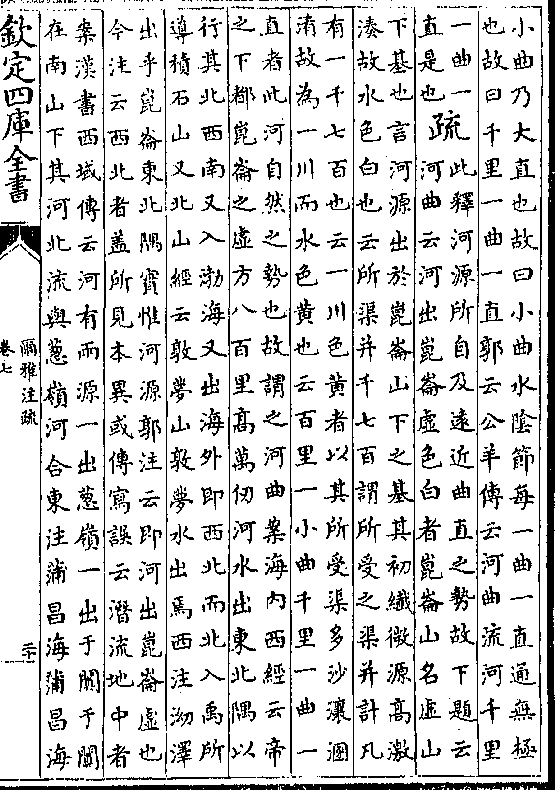 小曲乃大直也故曰小曲水陰節每一曲一直通無極
也故曰千里一曲一直郭云公羊傳云河曲流河千里
一曲一
直是也
疏
此釋河源所自及遠近曲直之勢故下題云
河曲云河出崑崙虛色白者崑崙山名虛山
下基也言河源出於崑崙山下之基其初纖微源高激
湊故水色白也云所渠并千七百謂所受之渠并計凡
有一千七百也云一川色黃者以其所受渠多沙壤溷
淆故為一川而水色黃也云百里一小曲千里一曲一
直者此河自然之勢也故謂之河曲案海內西經云帝
之下都崑崙之虛方八百里高萬仞河水出東北隅以
行其北西南又入渤海又出海外即西北而北入禹所
導積石山又北山經云敦夢山敦夢水出焉西注泑澤
出乎崑崙東北隅實惟河源郭注云即河出崑崙虛也
今注云西北者蓋所見本異或傳寫誤云潛流地中者
案漢書西域傳云河有兩源一出葱嶺一出于闐于闐
在南山下其河北流與葱嶺河合東注蒲昌海蒲昌海
欽定四庫全書
爾雅注疏
卷七
二十